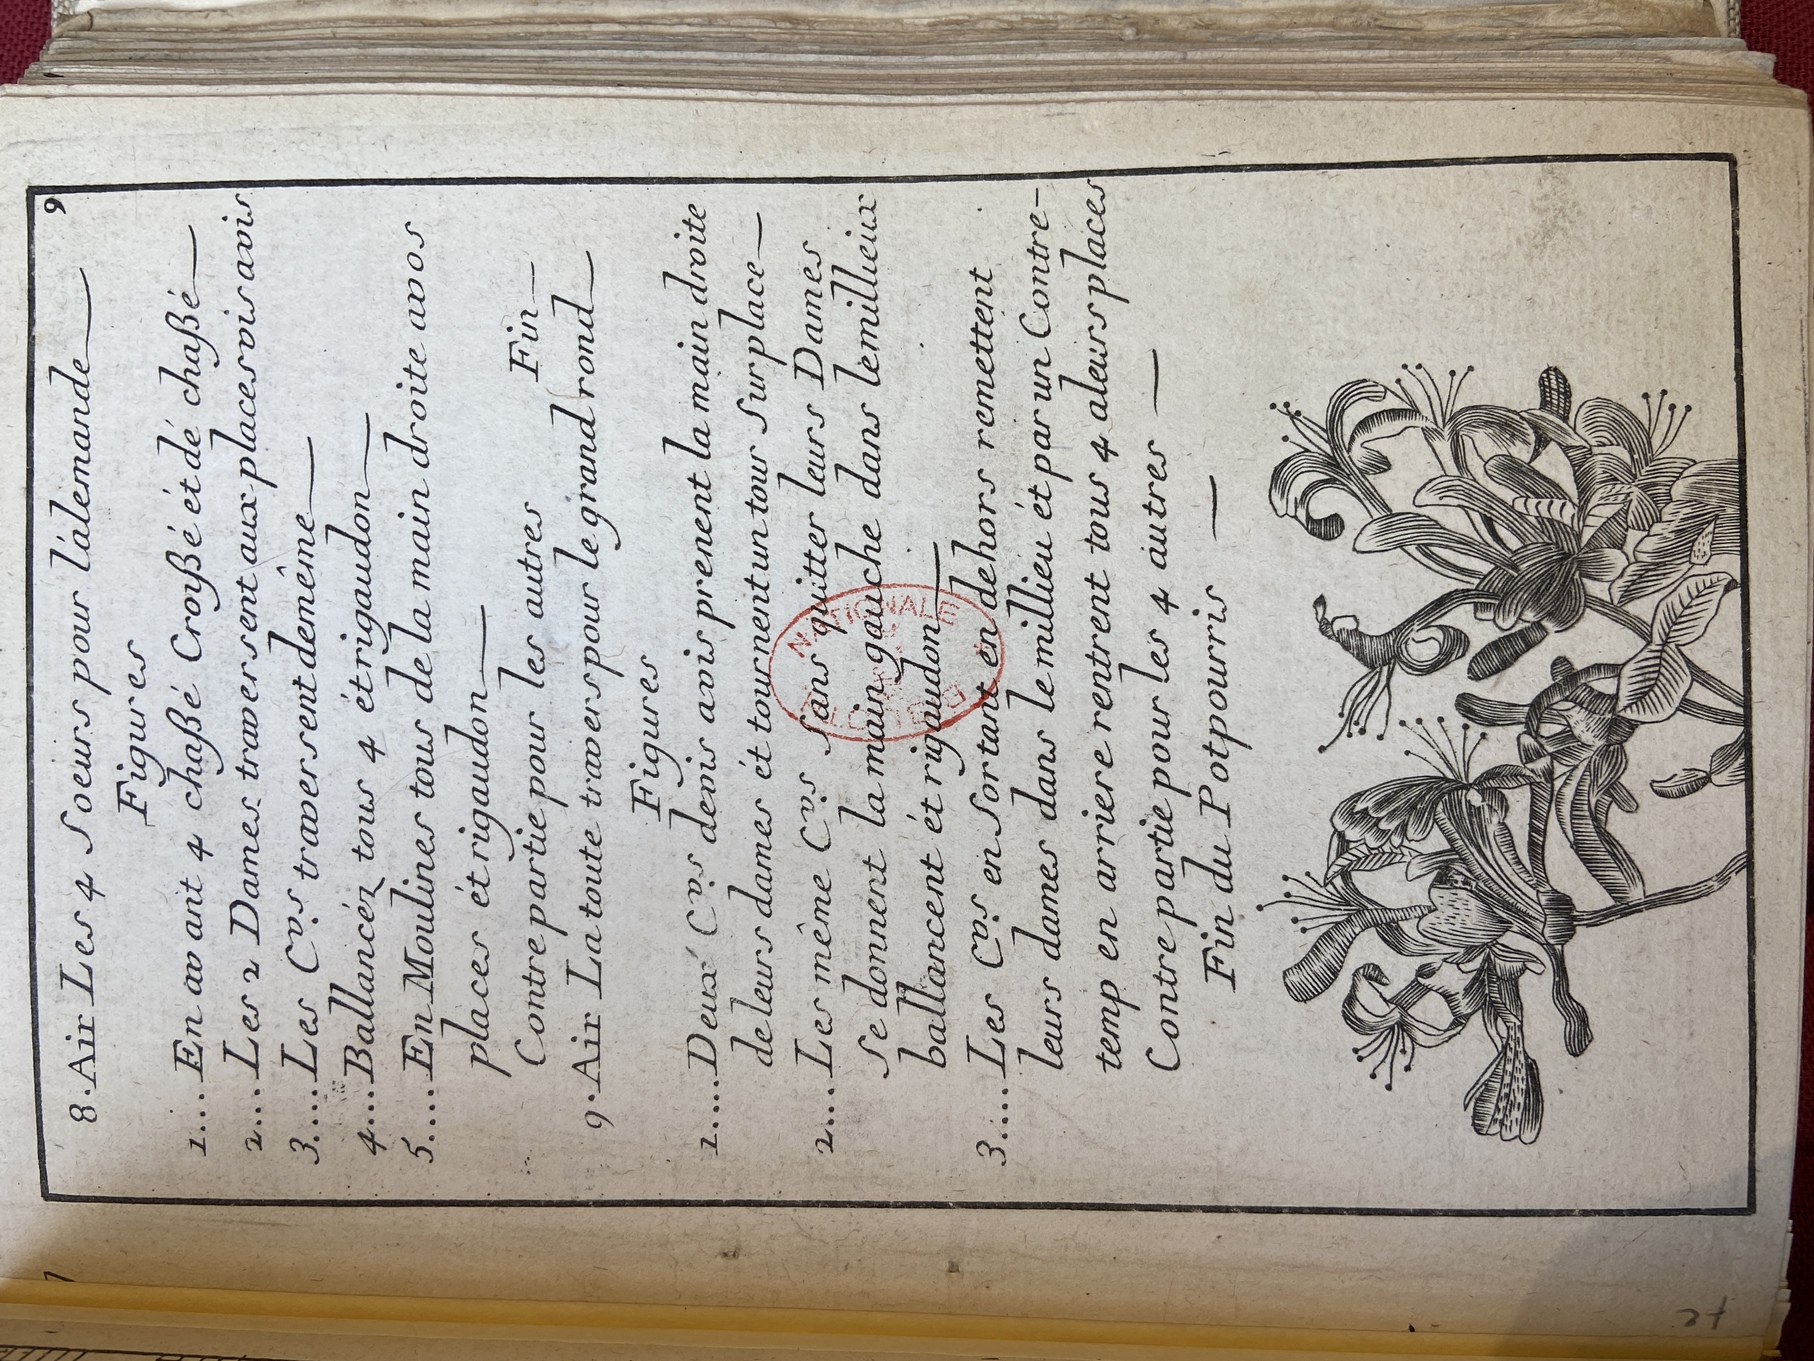 9
8. Air Les 4 Soeurs pour l'álemande
Figures
1.... En av ant 4 chaßé Croyßé ét dé chaßé
2.... Les 2 Dames traversent aux places vis avis
3..... Les Cvrs traversent demême
4.... Ballancéz tous 4 ét rigaudon
5..... En Moulines tous de la main droite avos
places ét rigaudon
Contre partie pour les autres Fin
9. Air La toute travers pour le grand rond
Figures
1..... Deux Cvrs devis avis prenent la main droite
de leurs dames ét tournent un tour Sur place
2.... Les même Cvrs Sans quitter leurs Dames
Se donnent la main gauche dans lemillieux
ballancent ét rigaudon
3..... Les Cvrs en Sortant en dehors remettent
leurs dames dans le millieu ét par un Contre-
temp en arriere rentrent tous 4 aleurs places
Contre partie pour les 4 autres
Fin du Potpourris
NATIONALE